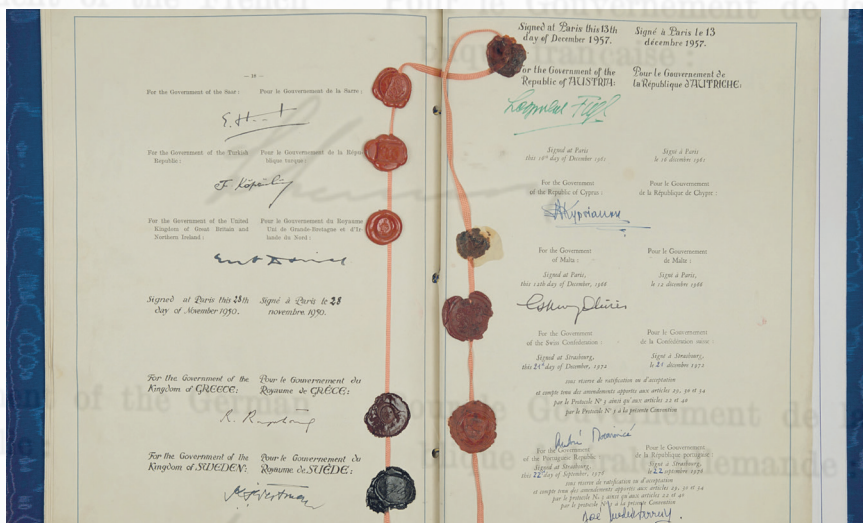 — 18 —
For the Government of the Saar : Pour le Gouvernement de la Sarre :
For the Government of the Turkish Republic :
Pour le Gouvernement de la République turque :
For the Government of the United Kingdom of Great Britain and Northern Ireland :
Pour le Gouvernement du Royaume Uni de Grande-Bretagne et d'Irlande du Nord :
Signed at Paris this 28th day of November 1950.
Signé à Paris le 28 novembre 1950.
For the Government of the Kingdom of GREECE:
Pour le Gouvernement du Royaume de GRÈCE:
For the Government of the Kingdom of SWEDEN:
Pour le Gouvernement du Royaume de SUÈDE:
Signed at Paris this 13th day of December 1957.
Signé à Paris le 13 décembre 1957.
For the Government of the Republic of AUSTRIA:
Pour le Gouvernement de la République d'AUTRICHE:
Leopold Figl
Signed at Paris this 16th day of December 1961
Signé à Paris le 16 décembre 1961
For the Government of the Republic of Cyprus :
Pour le Gouvernement de la République de Chypre :
For the Government of Malta :
Pour le Gouvernement de Malte :
Signed at Paris, this 12th day of December 1966
Signé à Paris, le 12 décembre 1966
For the Government of the Swiss Confederation :
Pour le Gouvernement de la Confédération suisse :
Signed at Strasbourg, this 21st day of December, 1972
Signé à Strasbourg, le 21 décembre 1972
sous réserve de ratification ou d'acceptation
et compte tenu des amendements apportés aux articles 29, 30 et 34
par le Protocole N° 3 ainsi qu'aux articles 22 et 40
par le Protocole N° 5 à la présente Convention
For the Government of the Portuguese Republic
Pour le Gouvernement de la République portugaise :
Signed at Strasbourg, this 22nd day of September, 1976
Signé à Strasbourg, le 22 septembre 1976
sous réserve de ratification ou d'acceptation
et compte tenu des amendements apportés aux articles 29, 30 et 34
par le protocole N. 3 ainsi qu'aux articles 22 et 40
par le protocole N. 5 à la présente Convention